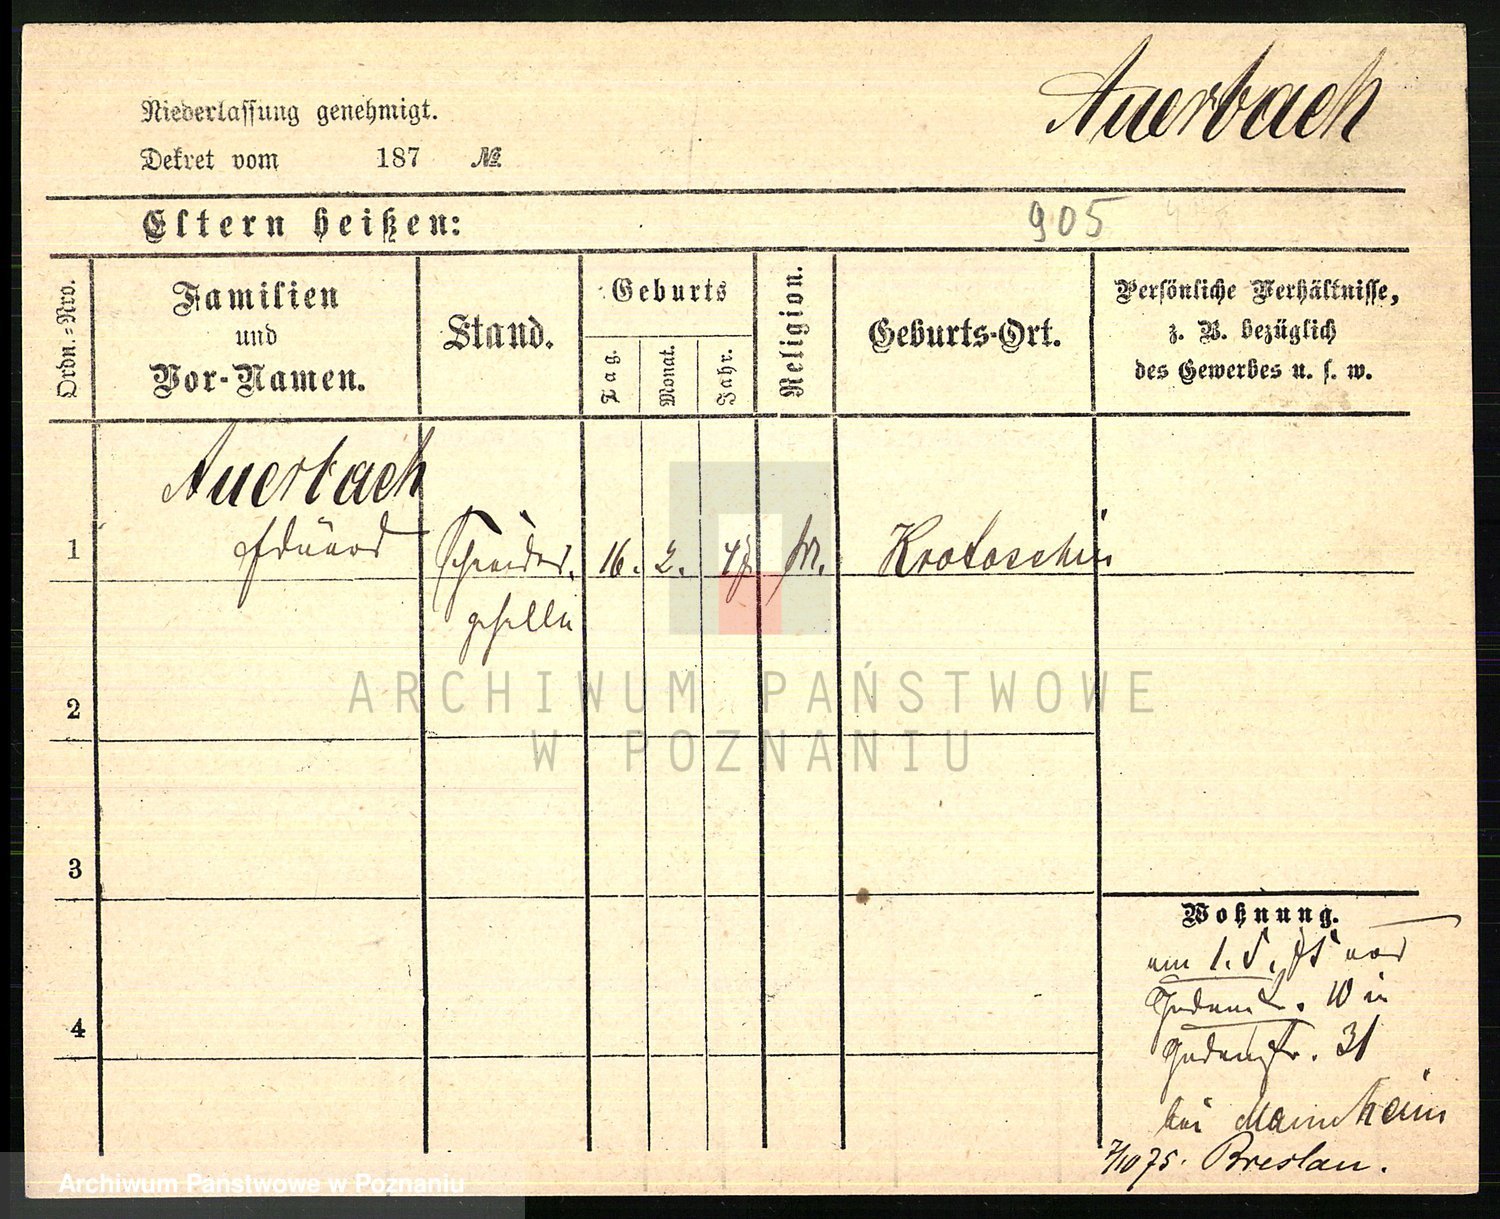 Auerbach
Niederlassung genehmigt.
Dekret vom 187 №
Eltern heißen:
905
Ordn.-Nro.
Familien
und
Vor-Namen.
Stand.
Geburts
Tag.
Monat.
Jahr.
Religion.
Geburts-Ort.
Persönliche Verhältnisse,
z. B. bezüglich
des Gewerbes u. s. w.
Auerbach
1 Eduard Schneider- 16. 2. 47 Krotoschin
geselle
2
3
4
Wohnung.
am 1. 5. 75 von
10 in
Judenstr. 31
bei Mannheim
7/10 75. Breslau.
ARCHIWUM PAŃSTWOWE
W POZNANIU
Archiwum Państwowe w Poznaniu